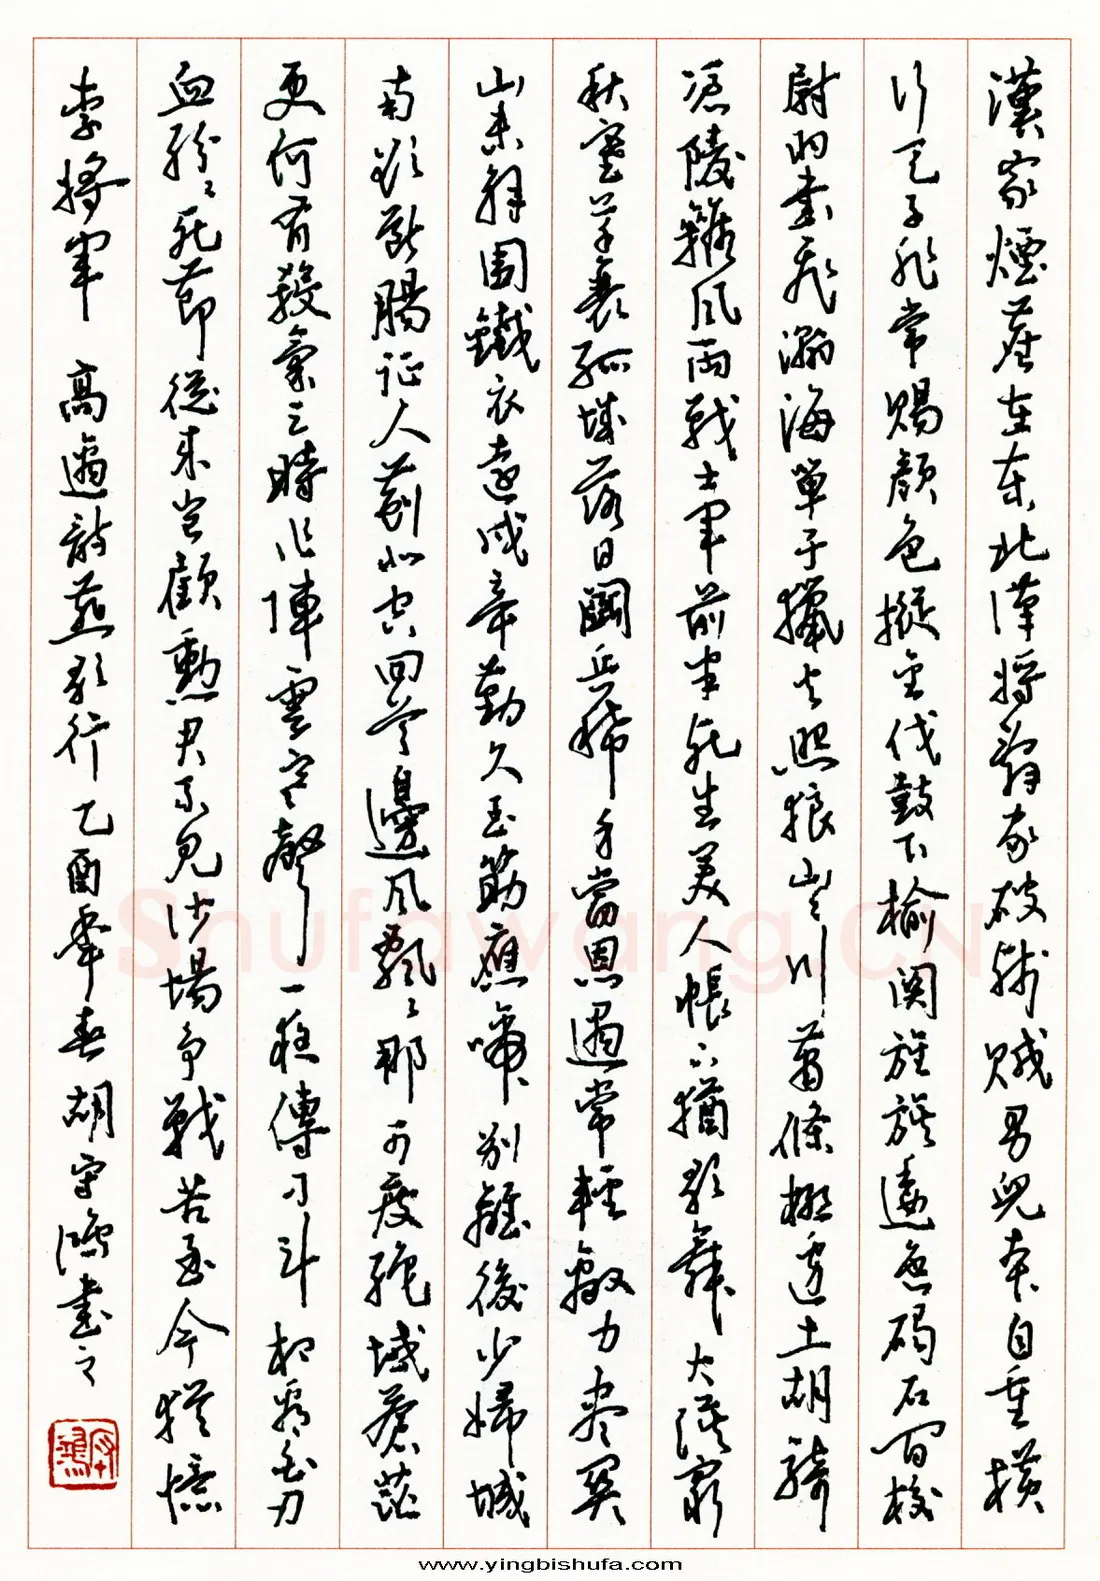 漢家煙塵在東北漢將辭家破殘賊男兒本自重橫
行天子非常賜顏色摐金伐鼓下榆関旌旗逶迤碣石間校
尉羽書飛瀚海單于獵火照狼山々川蕭條極邊土胡騎
憑陵雜風雨戰士軍前半死生美人帳下猶歌舞大漠窮
秋塞草衰孤城落日鬪兵稀身當恩遇常輕敵力盡関
山未解圍鐵衣遠戍辛勤久玉筯應啼別離後少婦城
南欲斷腸征人薊北空回首邊風飄々那可度絕域蒼茫
更何有殺氣三時作陣雲寒聲一夜傳刁斗相看白刃
血紛々死節從來豈顧勳君不見沙場爭戰苦至今猶憶
李將軍 高適詩燕歌行乙酉年春胡守鴻書之
守鴻
Shufawang.CN
www.yingbishufa.com